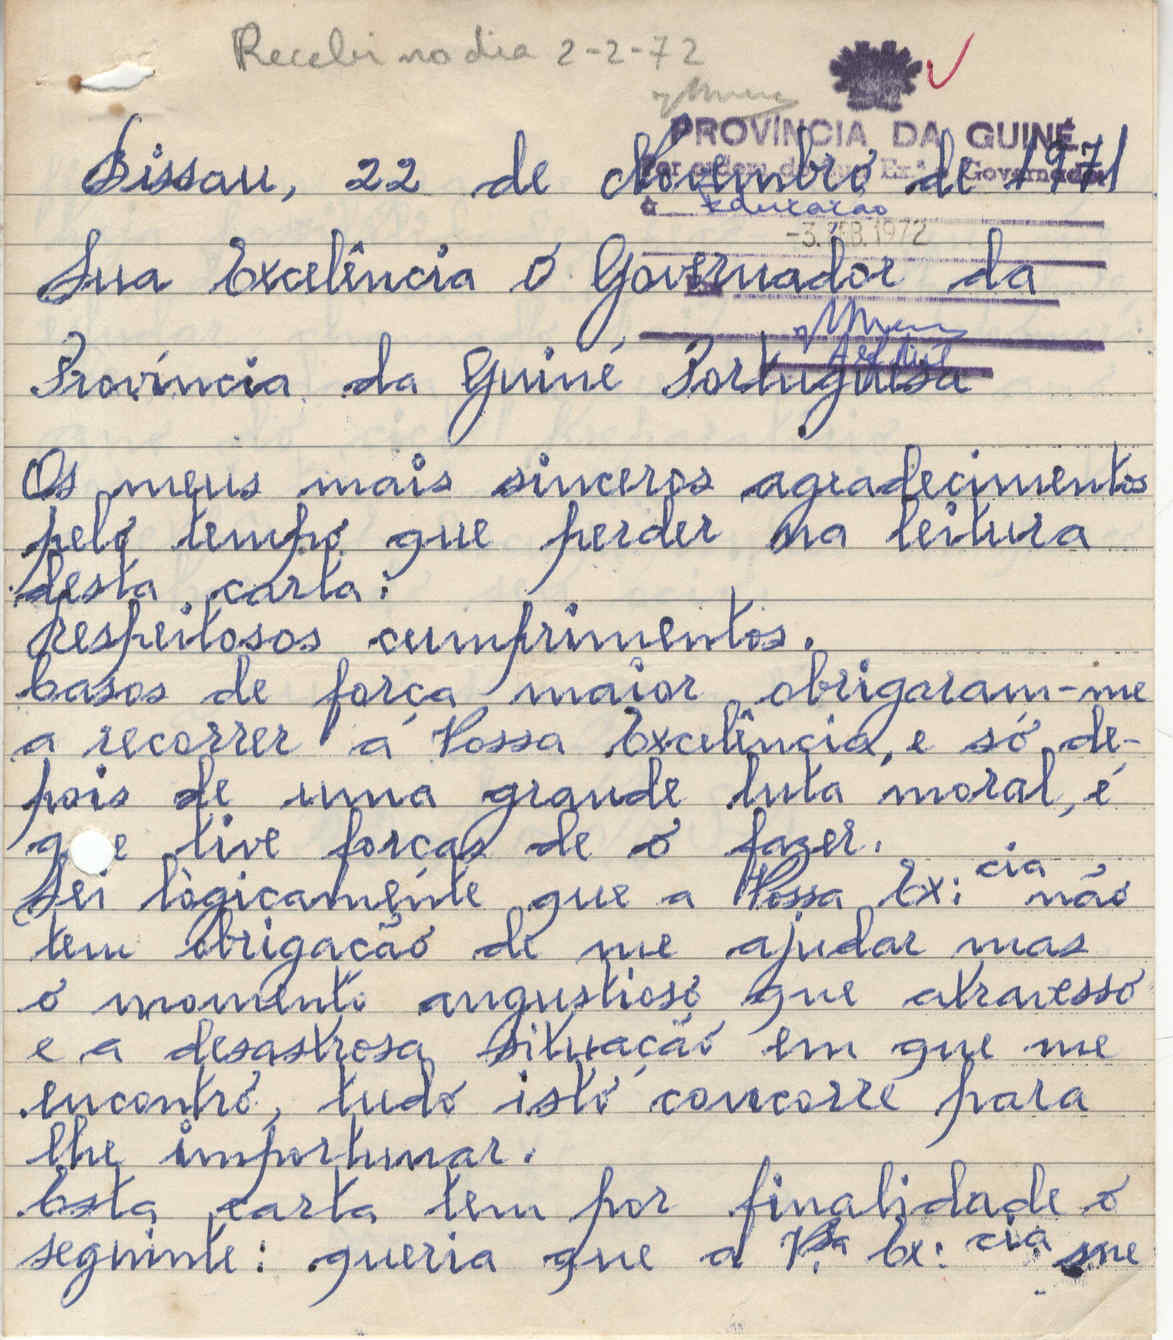 Recebi no dia 2-2-72
PROVÍNCIA DA GUINÉ
Por ordem de Sua Ex.ª o Governador
à Educação
-3. FEB. 1972
Bissau, 22 de Novembro de 1971
Sua Excelência o Governador da
Província da Guiné Portuguesa
Os meus mais sinceros agradecimentos
pelo tempo que perder na leitura
desta carta.
Respeitosos cumprimentos.
Casos de força maior obrigaram-me
a recorrer á Vossa Excelência, e só de-
pois de uma grande luta moral, é
que tive forças de o fazer.
Sei lògicamente que a Vossa Ex: cia não
tem obrigação de me ajudar mas
o momento angustioso que atravesso
e a desastrosa situação em que me
encontro, tudo isto concorre para
lhe importunar.
Esta carta tem por finalidade o
seguinte: queria que a V.ssa Ex: cia me